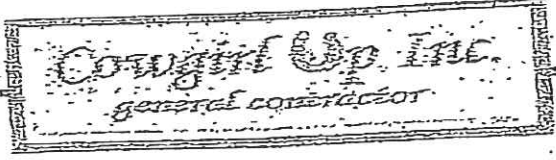 Cowgirl Up Inc.
general contractor